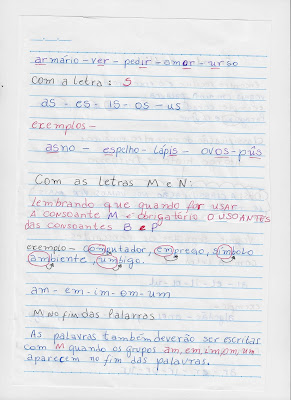 armário - ver - pedir - amar - urso
com a letra: S
as - es - is - os - us
exemplos -
asno - espelho - lápis - ovos - pús
Com as letras M e N:
Lembrando que quando for usar
A consoante M é obrigatório o uso antes
das consoantes B e P
exemplo - computador, empresa, símbolo
ambiente, umbigo.
am - em - im - om - um
M no fim das Palavras
As palavras também deverão ser escritas
com M quando os grupos am, em, im, om, um
aparecem no fim das palavras.